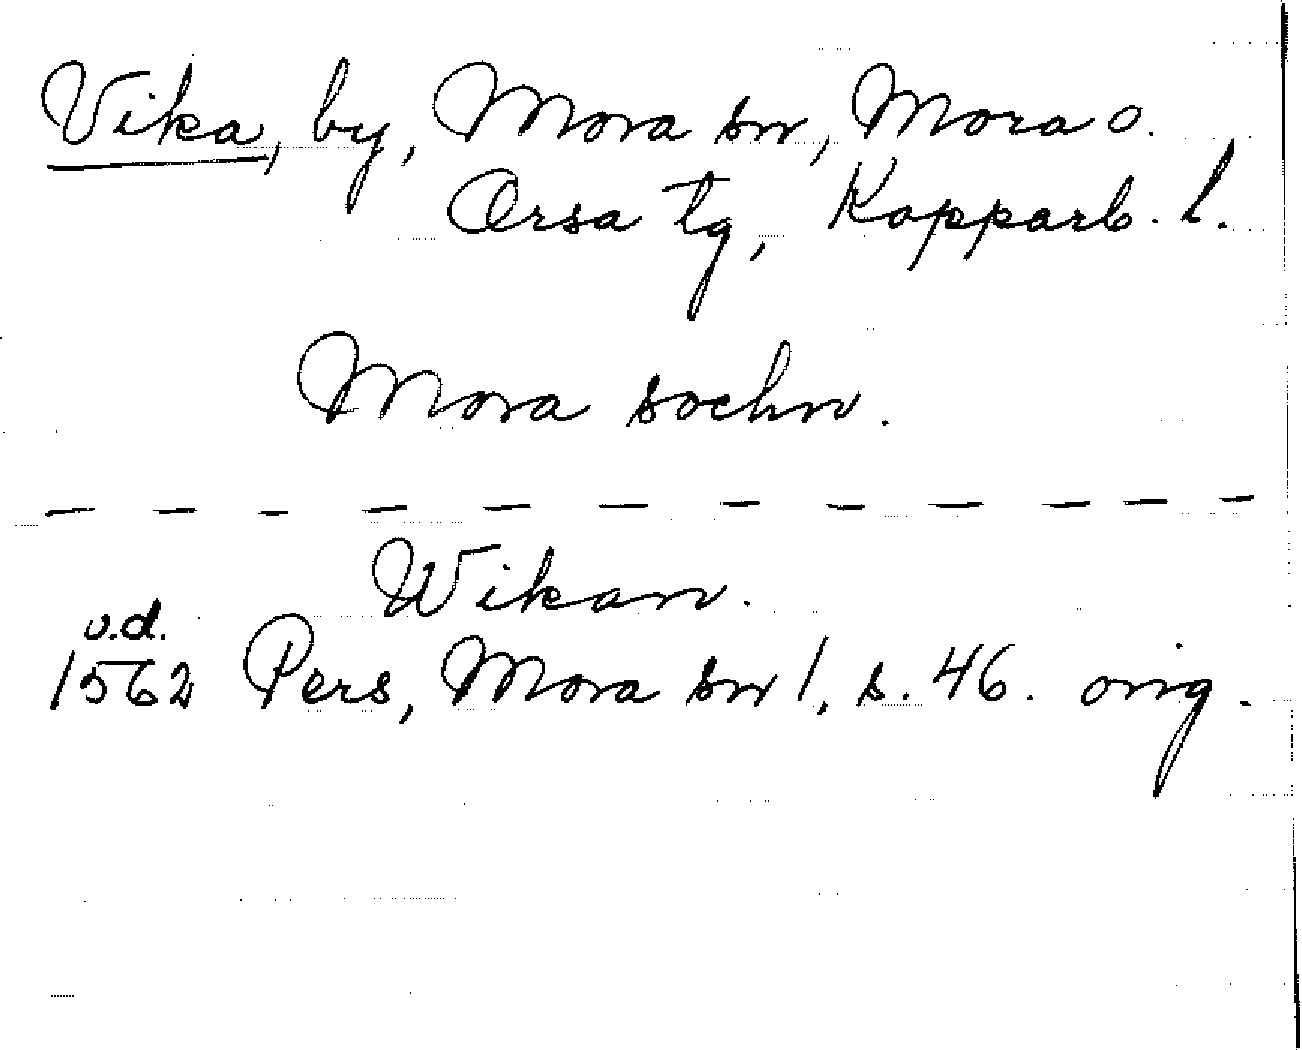 Vika, by, Mora sn, Mora o.
Orsa tg, Kopparb. l.
Mora sochn.
– – – – – – – – – – –
Wikan.
u.d.
1562 Pers, Mora sn 1, s. 46. orig.